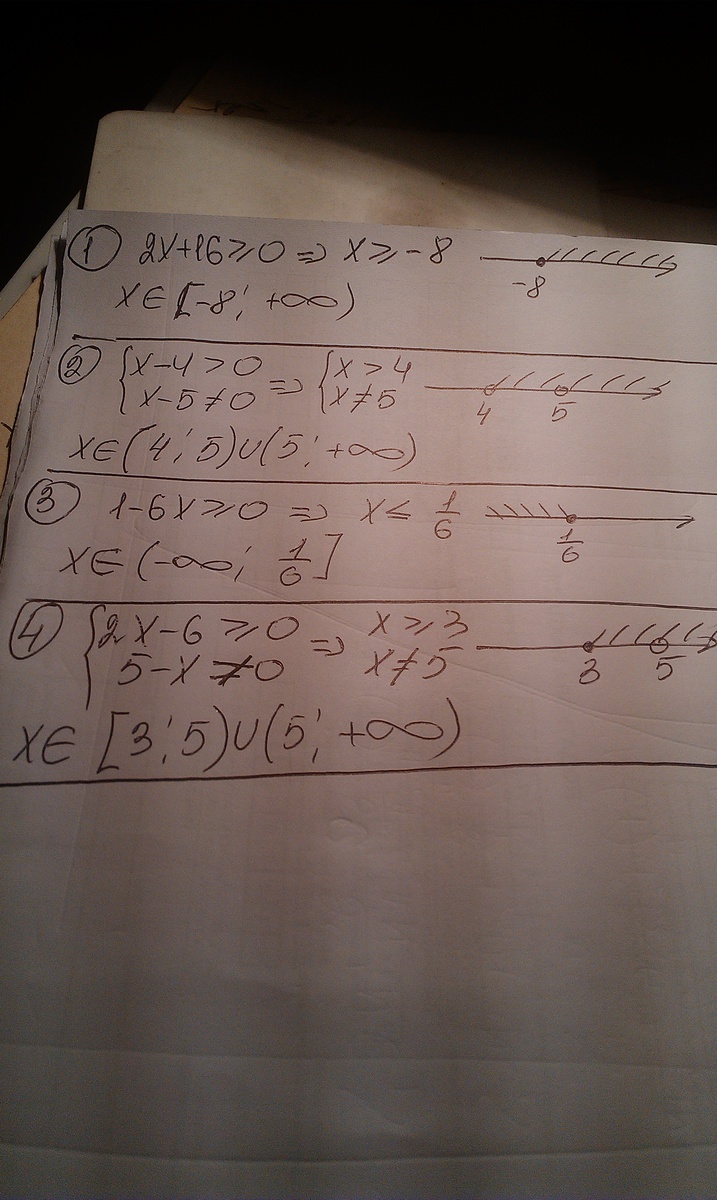 ① 2x+16≥0 ⇒ x≥-8
-8
x∈[-8; +∞)
② {x-4>0 ⇒ {x>4
{x-5≠0 {x≠5
4 5
x∈(4; 5)∪(5; +∞)
③ 1-6x≥0 ⇒ x≤ 1/6
1/6
x∈(-∞; 1/6]
④ {2x-6≥0 ⇒ x≥3
{5-x≠0 x≠5
3 5
x∈ [3; 5)∪(5; +∞)